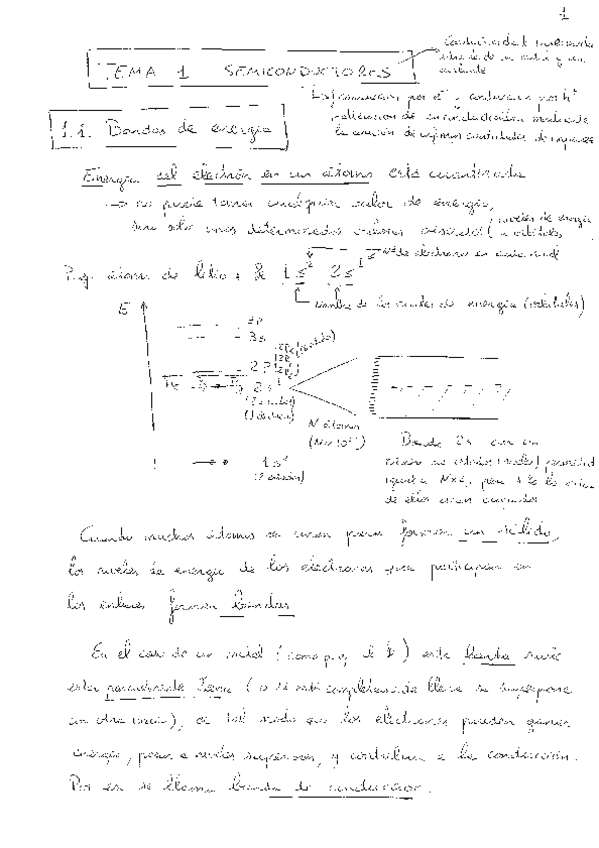 1
TEMA 1 SEMICONDUCTORES
Conductividad intermedia
entre la de un metal y un
aislante
1.1. Bandas de energía
conducen por e⁻ y conducen por h⁺
la adición de
Energía del electrón en un átomo está cuantizada
→ no puede tener cualquier valor de energía,
sino sólo unos determinados valores (niveles de energía
u orbitales
nº de electrones en cada nivel
P.ej. átomo de litio: 1s² 2s¹
nombre de los niveles de energía (orbitales)
E
3p
3s
2p
2s¹
(2 estados)
(1 electrón)
N átomos
1s²
(2 estados)
Banda 2s con un
número de estados (niveles) permitidos
igual a N×2, pero sólo la mitad
de ellos están ocupados
Cuando muchos átomos se unen para formar un sólido,
los niveles de energía de los electrones que participan en
los enlaces forman bandas
En el caso de un metal (como p.ej. el Li) esta banda
está parcialmente llena (o si está completamente llena se superpone
con otra vacía), de tal modo que los electrones pueden ganar
energía, pasar a niveles superiores, y contribuir a la conducción.
Por eso se llama banda de conducción.